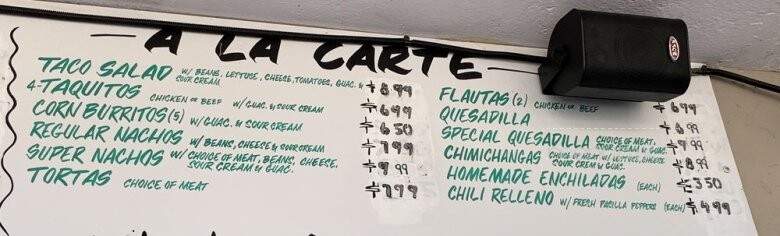 A LA CARTE
TACO SALAD W/ BEANS, LETTUCE, CHEESE, TOMATOES, GUAC. &
SOUR CREAM 8.99
4-TAQUITOS CHICKEN OR BEEF W/ GUAC. & SOUR CREAM 6.99
CORN BURRITOS (5) W/ GUAC. & SOUR CREAM 6.50
REGULAR NACHOS W/ BEANS, CHEESE & SOUR CREAM 7.99
SUPER NACHOS W/ CHOICE OF MEAT, BEANS, CHEESE,
SOUR CREAM & GUAC. 9.99
TORTAS CHOICE OF MEAT 7.99
FLAUTAS (2) CHICKEN OR BEEF 6.99
QUESADILLA 6.99
SPECIAL QUESADILLA CHOICE OF MEAT,
SOUR CREAM & GUAC. 7.99
CHIMICHANGAS CHOICE OF MEAT W/ LETTUCE, CHEESE
SOUR CREAM & GUAC. 8.99
HOMEMADE ENCHILADAS (EACH) 3.50
CHILI RELLENO W/ FRESH PACILLA PEPPERS (EACH) $4.99